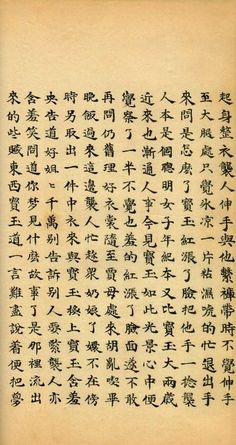 起身整衣襲人伸手與他繫褲帶時不覺伸手
至大腿處只覺氷凉一片粘濕唬的忙退出手
來問是怎麽了寶玉紅漲了臉把他手一捻襲
人本是個聰明女子年紀本又比寶玉大兩歲
近來也漸通人事今見寶玉如此光景心中便
覺察了一半不覺也羞的紅漲了臉面遂不敢
再問仍舊理好衣裳隨至賈母處來胡亂吃畢
晚飯過來這邊襲人忙趂衆奶娘丫嬛不在傍
時另取出一件中衣來與寶玉換上寶玉含羞
央告道好姐〻千萬别告訴别人要緊襲人亦
含羞笑問道你夢見什麽故事了是那裡流出
來的些臟東西寶玉道一言難盡說着便把夢